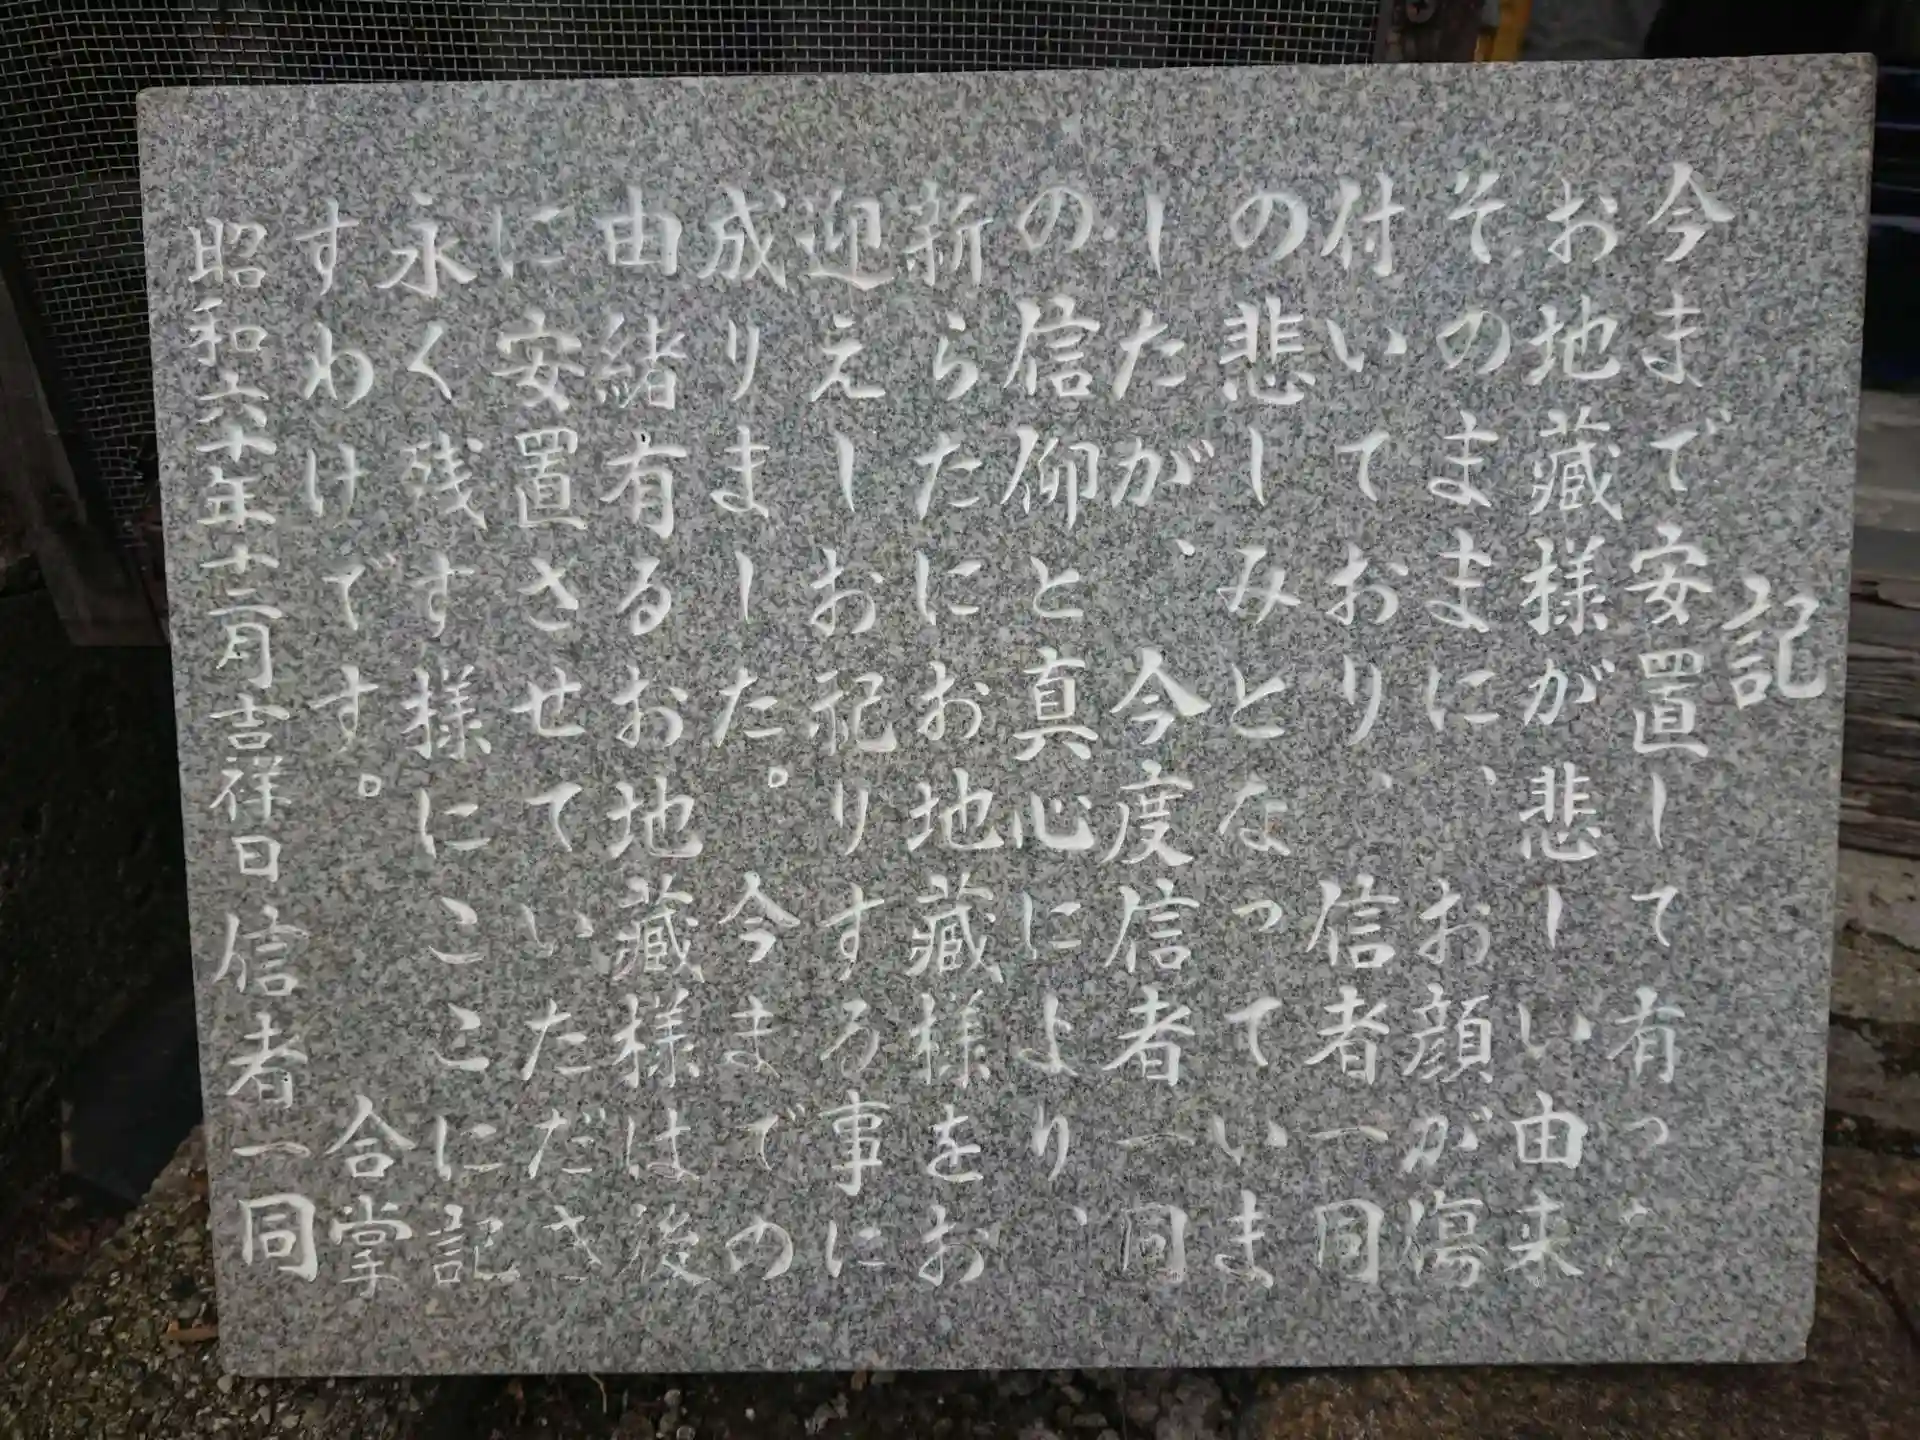 記
今まで安置して有った
お地蔵様が悲しい由来
そのままに、お顔が傷
付いており、信者一同
の悲しみとなっていま
したが、今度信者一同
の信仰と真心により、
新らたにお地蔵様をお
迎えしお祀りする事に
成りました。今までの
由緒有るお地蔵様は後
に安置させていただき
永く残す様にここに記
すわけです。
合掌
昭和六十年十二月吉祥日信者一同